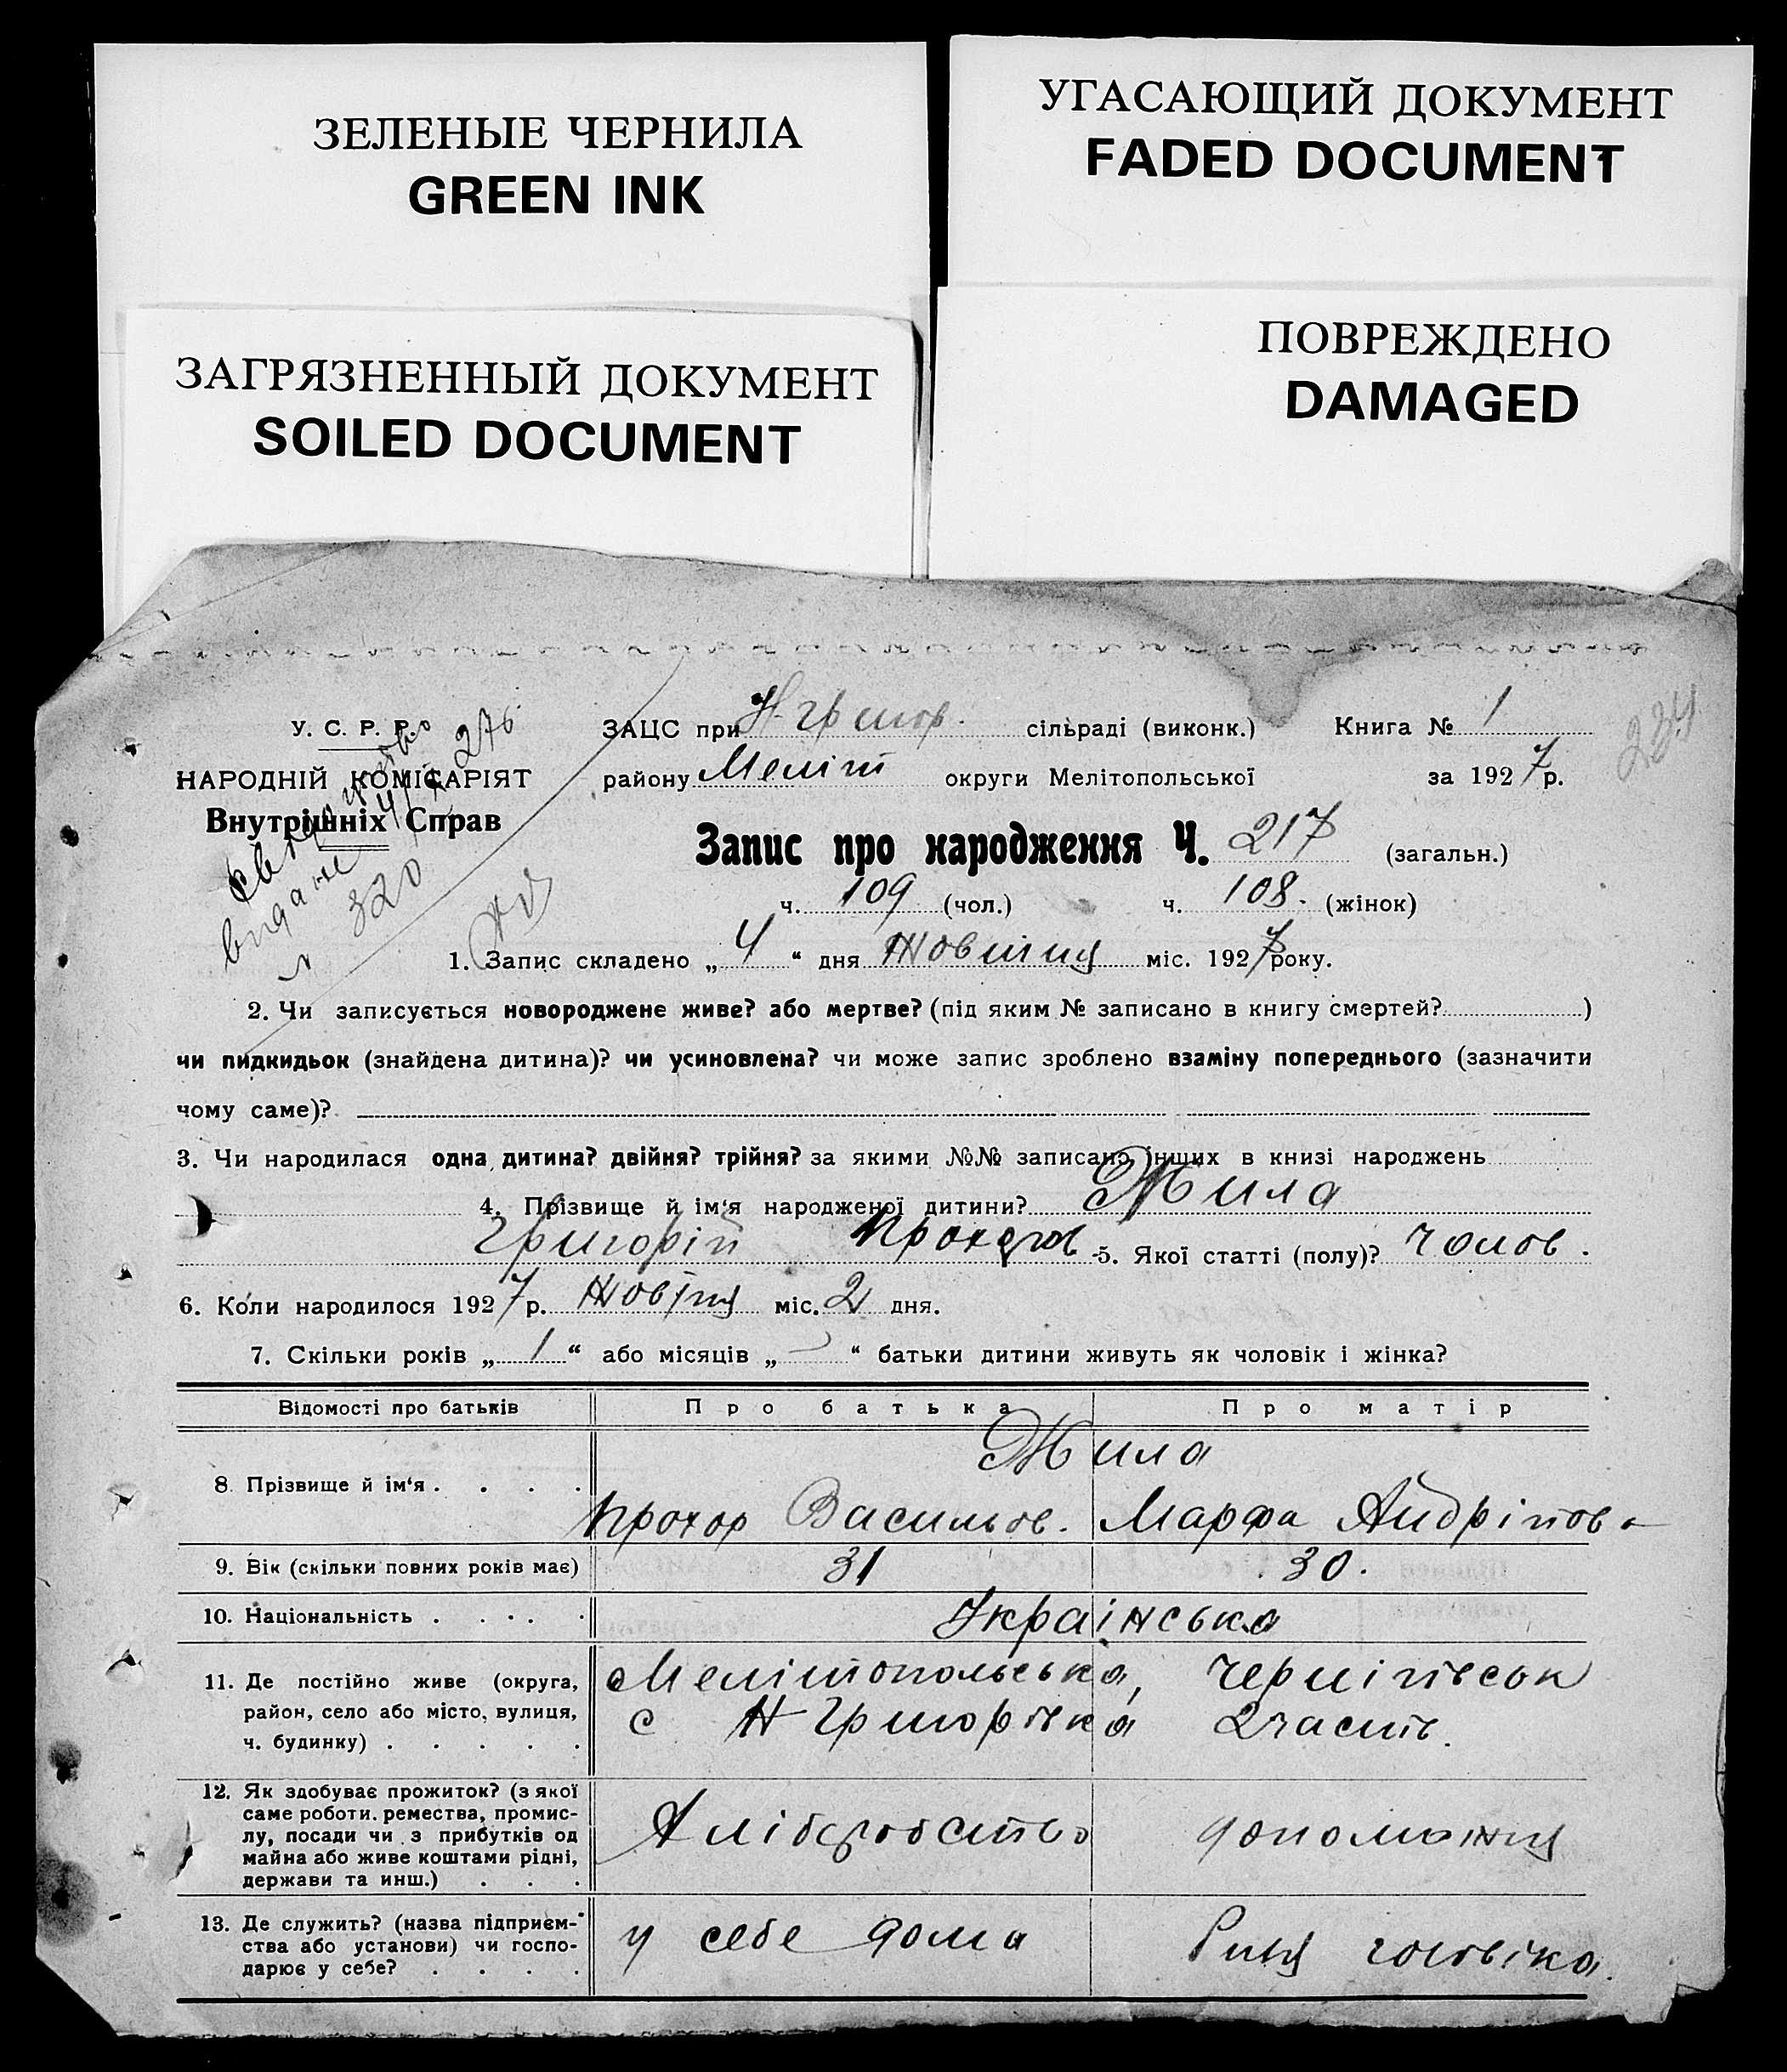 ЗЕЛЕНЫЕ ЧЕРНИЛА
GREEN INK
УГАСАЮЩИЙ ДОКУМЕНТ
FADED DOCUMENT
ЗАГРЯЗНЕННЫЙ ДОКУМЕНТ
SOILED DOCUMENT
ПОВРЕЖДЕНО
DAMAGED
234
У. С. Р. Р.
НАРОДНІЙ КОМІСАРІЯТ
Внутрішніх Справ
видане
320
ЗАЦС при Н-Григор. сільраді (виконк.) Книга № 1
району Меліт округи Мелітопольської за 1927 р.
Запис про народження Ч. 217 (загальн.)
ч. 109 (чол.) ч. 108. (жінок)
1. Запис складено „ 4 “ дня Жовтня міс. 1927 року.
2. Чи записується новороджене живе? або мертве? (під яким № записано в книгу смертей? )
чи пидкидьок (знайдена дитина)? чи усиновлена? чи може запис зроблено взаміну попереднього (зазначити
чому саме)?
3. Чи народилася одна дитина? двійня? трійня? за якими №№ записано інших в книзі народжень
4. Прізвище й ім‘я народженої дитини? Жила
Григорій Прохоров 5. Якої статті (полу)? чолов.
6. Коли народилося 1927 р. Жовтня міс. 2 дня.
7. Скільки років „ 1 “ або місяців „ “ батьки дитини живуть як чоловік і жінка?
Відомості про батьків Про батька Про матір
8. Прізвище й ім‘я . . . . Жила
Прохор Васильов. Марфа Андріїов.
9. Вік (скільки повних років має) 31 30.
10. Національність . . . . Українська
11. Де постійно живе (округа, район, село або місто, вулиця, ч. будинку) . . . . . Мелітопольська,
с Н Григорівка 2 часть.
12. Як здобуває прожиток? (з якої саме роботи. ремества, промислу, посади чи з прибутків од майна або живе коштами рідні, держави та инш.) . . . Хліборобство
13. Де служить? (назва підприємства або установи) чи господарює у себе? . . . . у себе дома чоловіка.